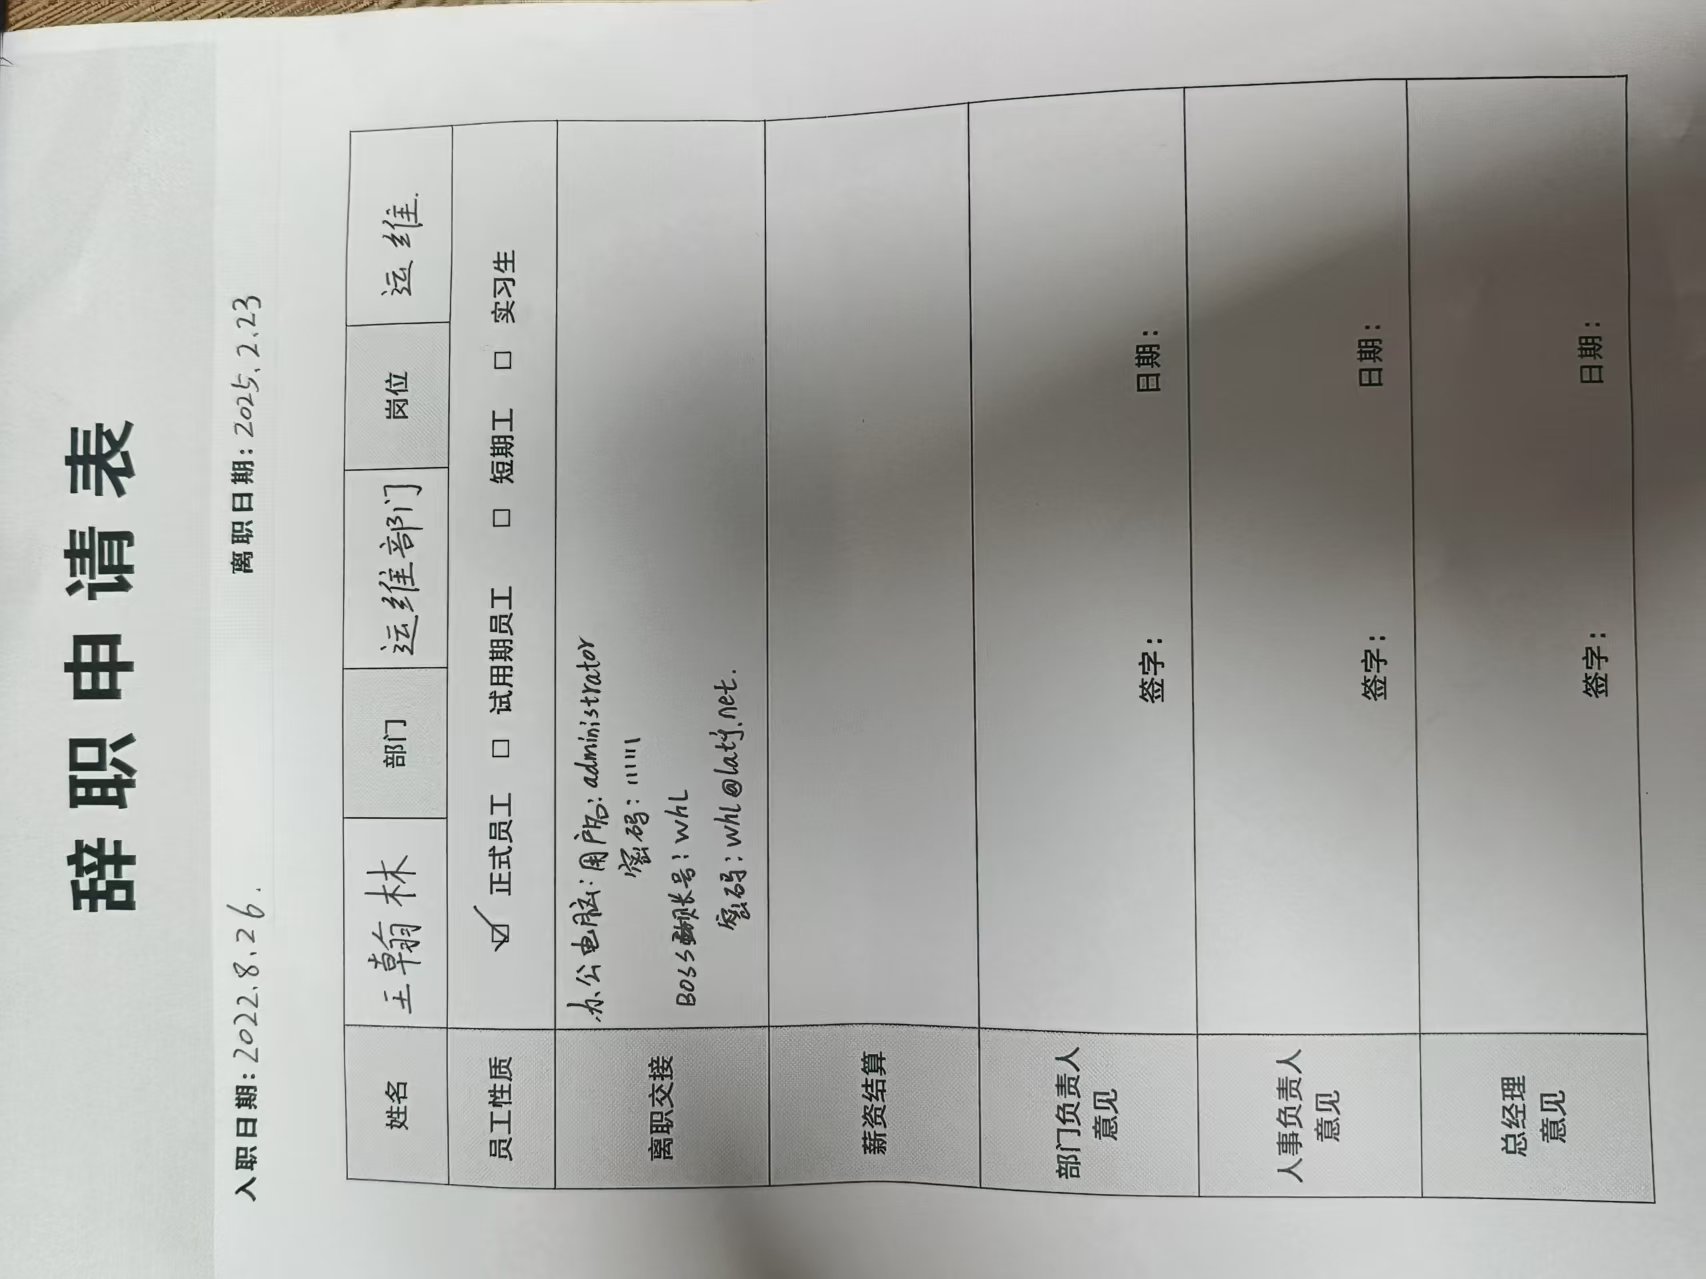 辞职申请表
入职日期：2022.8.26. 离职日期：2025.2.23
姓名 王翰林 部门 运维部门 岗位 运维.
员工性质 ☑ 正式员工 □ 试用期员工 □ 短期工 □ 实习生
办公电脑：用户名：administrator
密码：111111
离职交接
BOSS 账号：whL
密码：whl@latj.net.
薪资结算
部门负责人
意见
签字： 日期：
人事负责人
意见
签字： 日期：
总经理
意见
签字： 日期：